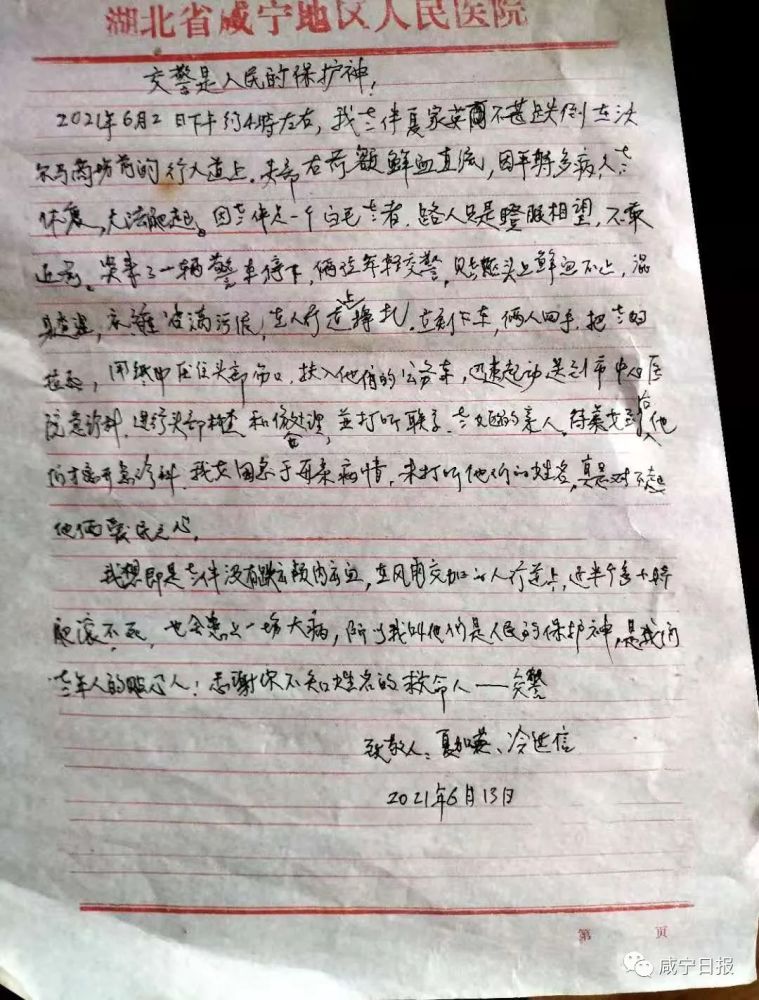 湖北省咸宁地区人民医院
交警是人民的保护神!
2021年6月2日下午约4时左右,我老伴夏家英因不甚跌倒在沃
尔马商场前的行人道上.头部右前额鲜血直流,因平时多病,人老
体衰,无法爬起。因老伴是一个白毛老者.路人只是瞪眼相望,不敢
近前。突来了一辆警车停下,俩位年轻交警,见她头上鲜血不止,混
身,衣被满污泥,在人行道上挣扎.立刻下车,俩人四手.把老的
,用纸巾压住头部伤口.扶入他俩的公务车,迅速起动送到市中心医
院急诊科.进行头部检查和处理,并打听联系老的亲人.待到后他
们才离开急诊科.我因急于再亲病情,未打听他们的姓名,真是对不起
他俩爱民之心.
我想即是老伴没有跌颅内出血,在风雨交加的人行道上,近半个多小时
爬滚不死,也会患上一场大病,所以我叫他们是人民的保护神,是我们
老年人的贴心人!感谢你不知姓名的救命人——交警
致敬人:夏家英、冷进信
2021年6月13日
第 页
咸宁日报